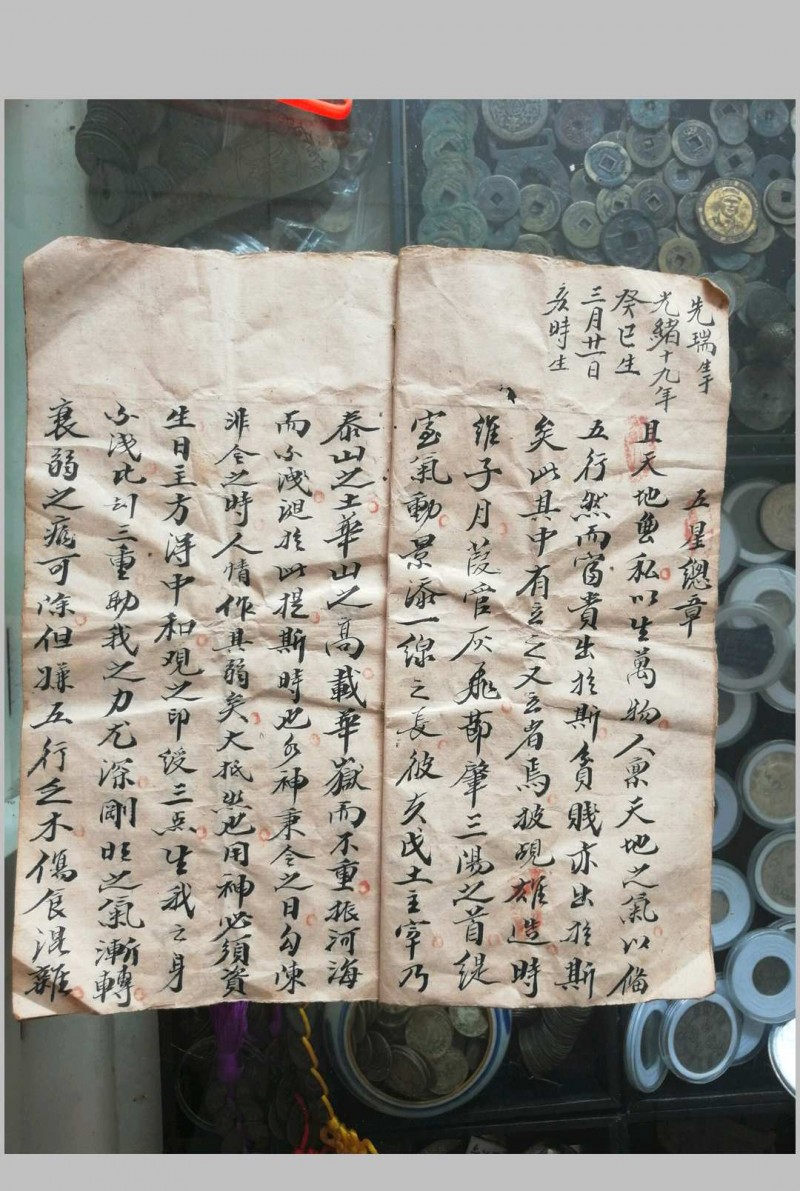 先瑞生
光緒十九年
癸巳生
三月廿一日
亥時生
五星總章
且天地無私以生萬物人禀天地之氣以備
五行然而富貴出於斯貧賤亦出於斯
矣此其中有立之又立者焉披硯雄造時
維子月葭管灰飛節肇三陽之首緹
室氣動景添一線之長彼亥戊土主宰乃
泰山之土華山之高載華嶽而不重振河海
而不洩迴於此提斯時也水神秉令之日勾陳
非令之時人情作其弱矣大抵然也用神必須資
生日主方得中和观之印綬三点生我之身
不淺比刦三重助我之力尤深剛旺之氣漸轉
衰弱之病可除但嫌五行乏木傷食混雜